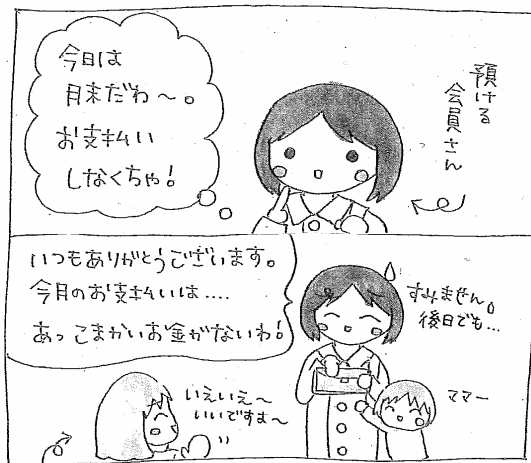 今日は
月末だわ〜。
お支払い
しなくちゃ!
預ける
会員さん
いつもありがとうございます。
今月のお支払いは....
あっこまかいお金がないわ!
すみません。
後日でも...
ママー
いえいえ〜
いいですよ〜